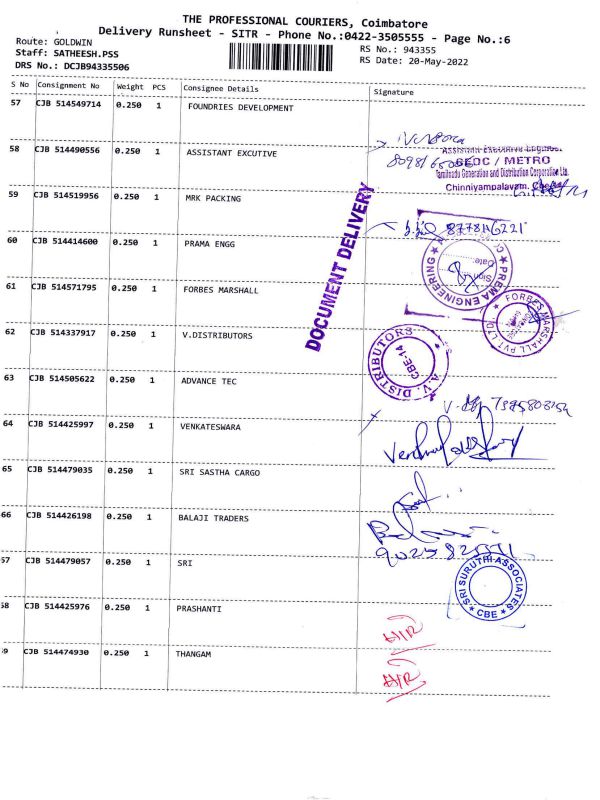 THE PROFESSIONAL COURIERS, Coimbatore
Delivery Runsheet - SITR - Phone No.:0422-3505555 - Page No.:6
Route: GOLDWIN
Staff: SATHEESH.PSS
DRS No.: DCJB94335506
RS No.: 943355
RS Date: 20-May-2022
S No Consignment No Weight PCS Consignee Details Signature
57 CJB 514549714 0.250 1 FOUNDRIES DEVELOPMENT
58 CJB 514490556 0.250 1 ASSISTANT EXCUTIVE
Assistant Executive Engineer
GEDC / METRO
Tamilnadu Generation and Distribution Corporation Ltd.
Chinniyampalayam.
59 CJB 514519956 0.250 1 MRK PACKING
8778146221
60 CJB 514414600 0.250 1 PRAMA ENGG
PREMA ENGINEERING
Date:
Sign
DOCUMENT DELIVERY
61 CJB 514571795 0.250 1 FORBES MARSHALL
FORBES MARSHALL PVT. LTD.
62 CJB 514337917 0.250 1 V.DISTRIBUTORS
A.V. DISTRIBUTORS
CBE-14
63 CJB 514505622 0.250 1 ADVANCE TEC
64 CJB 514425997 0.250 1 VENKATESWARA
65 CJB 514479035 0.250 1 SRI SASTHA CARGO
66 CJB 514426198 0.250 1 BALAJI TRADERS
57 CJB 514479057 0.250 1 SRI
SRI SURUTHI ASSOCIATES
CBE
58 CJB 514425976 0.250 1 PRASHANTI
9 CJB 514474930 0.250 1 THANGAM